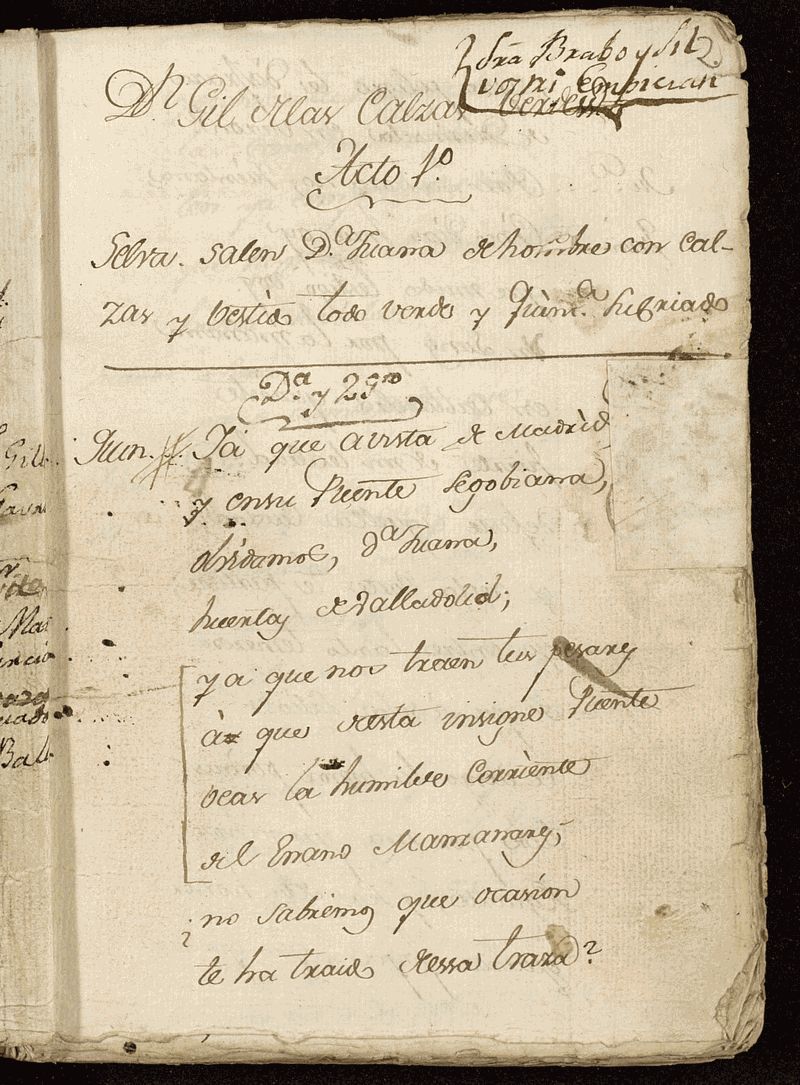 Sra Brabo y Sil 2.
Empiezan
Dn Gil de las Calzas Verdes
Acto 1º
Selva. salen D.ª Juana de hombre con cal-
zas y vestido todo verde y Quint.ª su criado
D.ª y 2
Quin. Ya que a vista de Madrid
y en su Puente Segobiana,
olvidamos, Dª Juana,
huertas de Valladolid;
ya que nos traen tus pesares
à que desta insigne Puente
veas la humilde Corriente
del Enano Manzanares;
¿no sabremos que ocasion
te ha traido dessa traza?
Gil